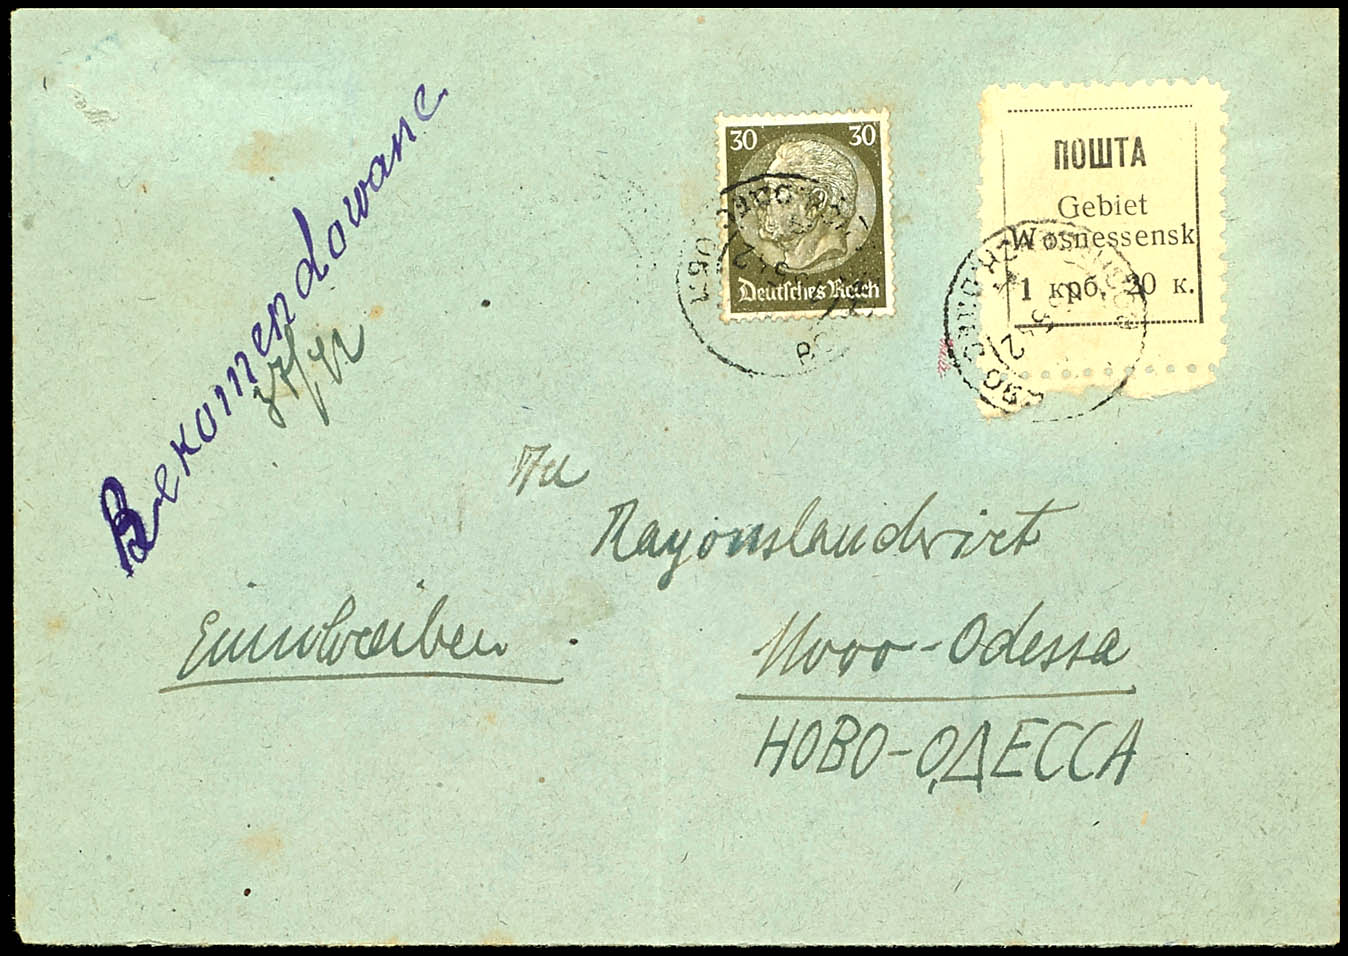 30 30
Deutsches Reich
ПОШТА
Gebiet
Wosnessensk
1 крб. 20 к.
Rekomendowane
An
Rayonslandwirt
Einschreiben
Nowo-Odessa
НОВО-ОДЕССА